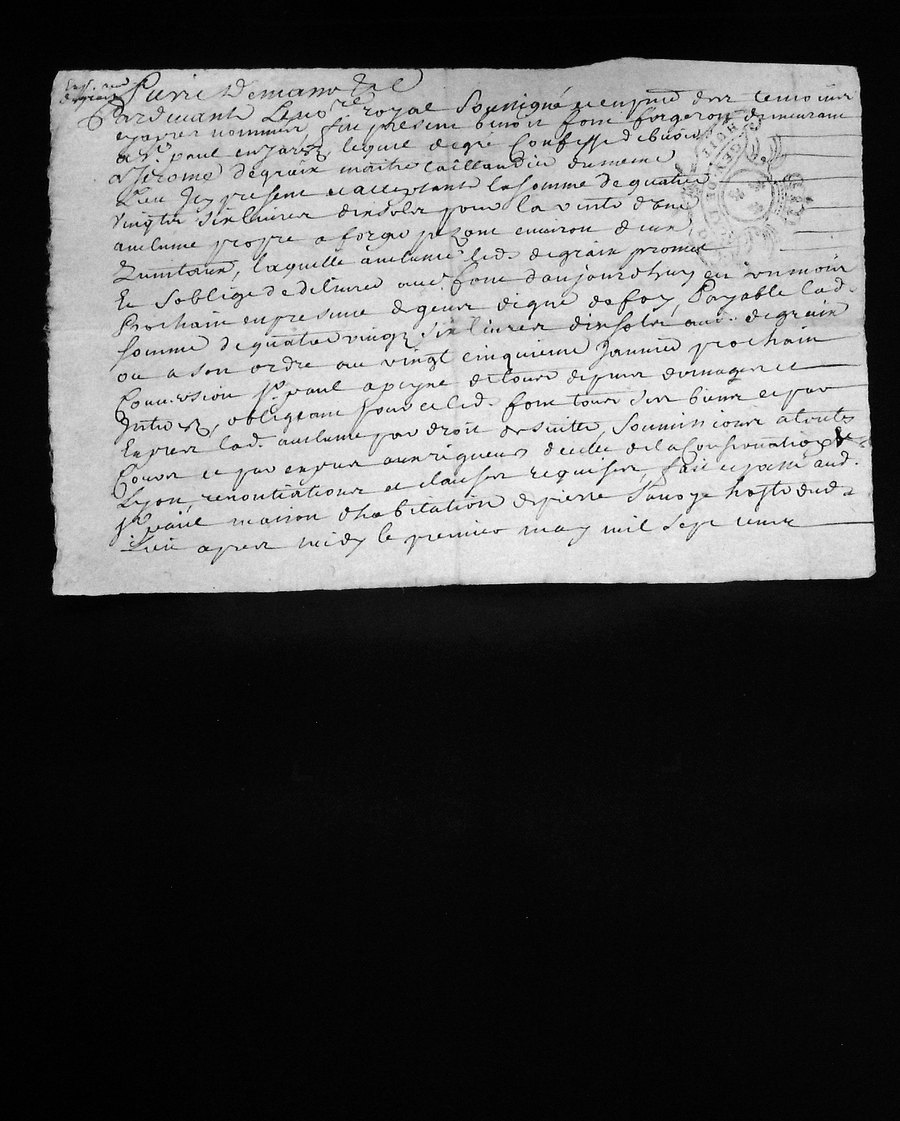 Pierre
Pardevant Le no.re royal soussigné et en presence des temoins
apres nommes, fut present benoit font forgeron demeurant
a S.t paul en jarest, lequel de gre confesse debvoir
a Jerome degraix maitre taillandier du meme
Lieu Icy present et acceptant la somme de quatre
vingts six livres dix sols pour la vente d'une
anclume propre a forge pezant environ deux
quintaux, laquelle anclume led. degraix promet
et s'oblige de delivrer aud. font d'aujourdhuy en un mois
prochain en presence de gens digne de foy, Payable lad.
somme de quatre vingt six livres dix sols, aud. degraix
ou a son ordre au vingt cinquieme Janvier prochain
S.t paul a peyne de tous depens dommages et
Interest, obligeant pour ce led. font tous ses biens et par
Expres lad. anclume par droit de suitte, soumissions a toutes
Cours et par expres aux rigueurs de celle de la Conservation de
Lyon, renontiations et clauses requises, fait et passé aud.
S.t paul maison d'habitation de pierre hoste dud.
Lieu apres midy le premier may mil sept cent